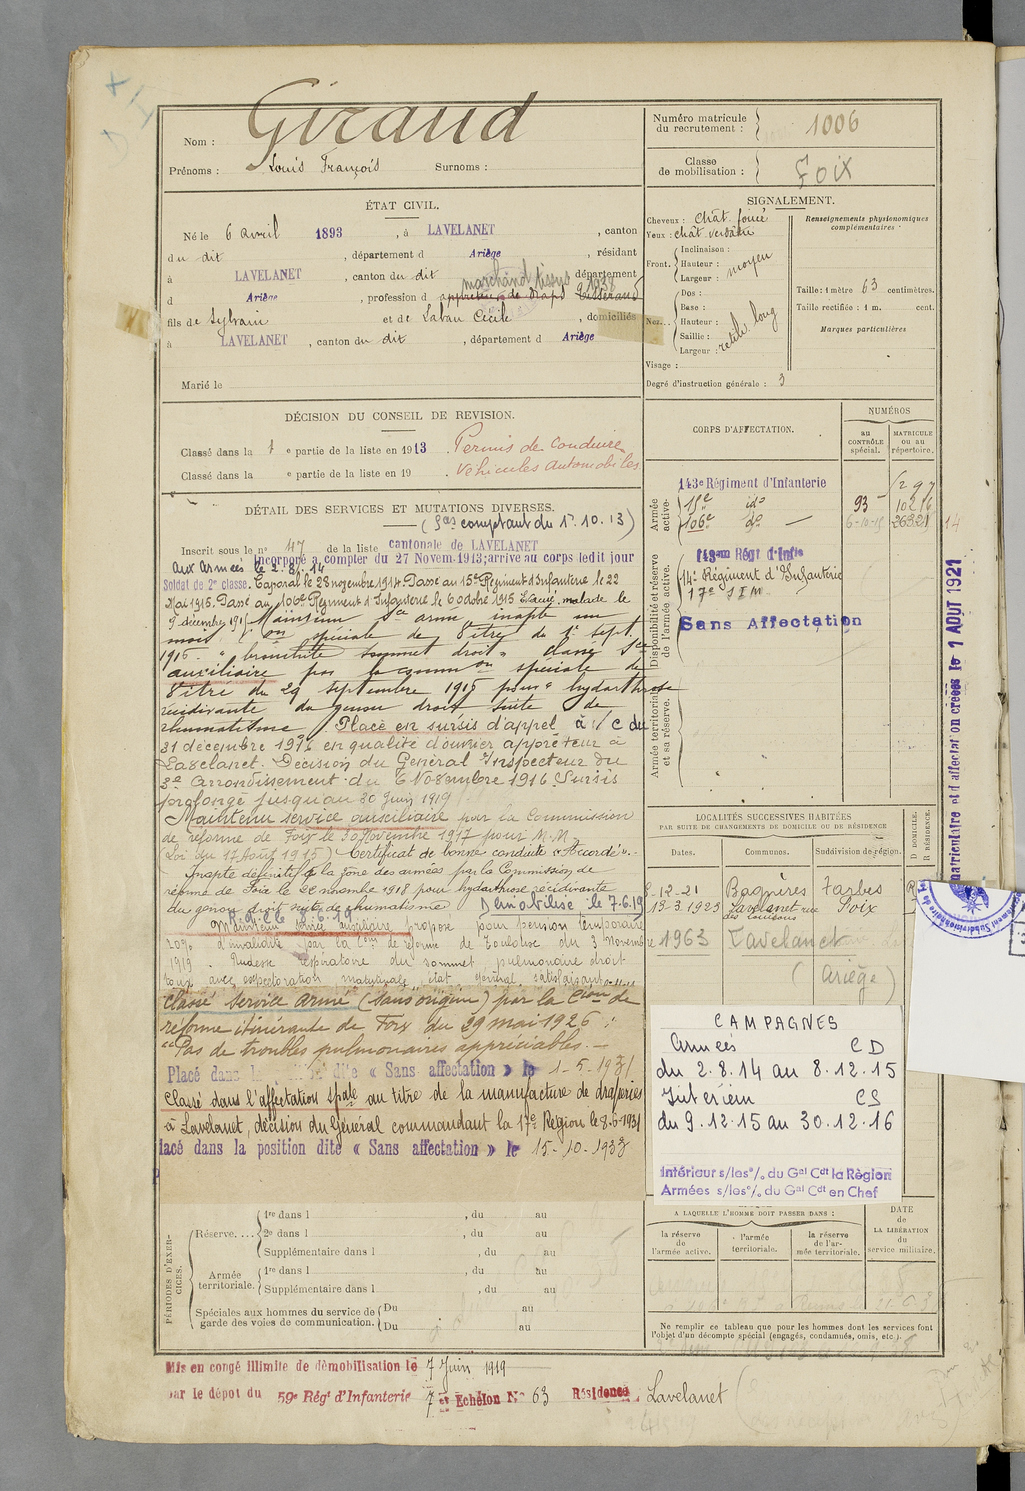 Giraud
Nom :
Prénoms : Louis François Surnoms :
Numéro matricule
du recrutement : 1006
Classe
de mobilisation : Foix
ÉTAT CIVIL.
Né le 6 avril 1893, à LAVELANET, canton
du dit, département d Ariège, résidant
à LAVELANET, canton du dit département
marchand tissus 1938
d Ariège, profession d apprêteur de drap Tisserand
fils de Sylvain et de Laban Cécile, domiciliés
à LAVELANET, canton du dit, département d Ariège
Marié le
SIGNALEMENT.
Cheveux : chât. foncé
Yeux : chât. verdâtre
Front. Inclinaison :
Hauteur :
Largeur : moyen
Nez... Dos :
Base :
Hauteur :
Saillie :
Largeur : rectil. long
Visage :
Degré d'instruction générale : 3
Renseignements physionomiques
complémentaires :
Taille : 1 mètre 63 centimètres.
Taille rectifiée : 1 m. cent.
Marques particulières
DÉCISION DU CONSEIL DE REVISION.
Classé dans la 1 e partie de la liste en 1913. Permis de Conduire
Classé dans la e partie de la liste en 19 . Véhicules Automobiles
DÉTAIL DES SERVICES ET MUTATIONS DIVERSES.
(Sces comptant du 1r.10.13)
Inscrit sous le n° 47 de la liste cantonale de LAVELANET
Incorporé à compter du 27 Novem-1913; arrivé au corps ledit jour
Aux Armées le 2.8.14
Soldat de 2e classe. Caporal le 28 novembre 1914. Passé au 15e Régiment d'Infanterie le 22
Mai 1915. Passé au 106e Régiment d'Infanterie le 6 octobre 1915 Evacué malade le
9 décembre 1915 Maintenu Sce armé inapte un
mois, Con spéciale de Vitré du 1r sept.
1916 - " bronchite sommet droit " Classé Sce
auxiliaire par la commion spéciale de
Vitré du 29 septembre 1916 pour " hydarthrose
récidivante du genou droit suite de
rhumatisme. Placé en sursis d'appel à /c du
31 décembre 1916 en qualité d'ouvrier apprêteur à
Lavelanet. Décision du Général Inspecteur du
3e Arrondissement du 6 Novembre 1916. Sursis
prolongé jusqu'au 30 Juin 1919
Maintenu service auxiliaire par la Commission
de réforme de Foix le 30 Novembre 1917 pour M.M.
(Loi du 17 Août 1915) Certificat de bonne conduite "Accordé".
Inapte définitif à la zone des armées par la Commission de
réforme de Foix le 22 novembre 1918 pour hydarthrose récidivante
du genou droit suite de rhumatisme Démobilisé le 7.6.19
R.a.c. le 8.6.19
Maintenu service auxiliaire proposé pour pension temporaire
20% d'invalidité par la Com de réforme de Toulouse du 3 novembre
1919. Rudesse respiratoire du sommet pulmonaire droit
toux avec expectoration matutinale état général satisfaisant
Classé Service armé (sans origine) par la Cion de
réforme itinérante de Foix du 29 mai 1926 :
"Pas de troubles pulmonaires appréciables. —
Placé dans la dite « Sans affectation » le 1-5-1931
Classé dans l'affectation spale au titre de la manufacture de draperies
à Lavelanet, décision du Général commandant la 17e Région le 8-6-1931
lacé dans la position dite « Sans affectation » le 15-10-1933
CORPS D'AFFECTATION.
NUMÉROS
au
CONTRÔLE
spécial.
MATRICULE
ou au
répertoire.
Armée
active.
143e Régiment d'Infanterie
15e do 93 10216
106e do — 6-10-15
Disponibilité et réserve
de l'armée active.
143me Régt d'Infie
14e Régiment d'Infanterie
Sans Affectation
Armée territoriale
et sa réserve.
matriculaire et d'affectation créées le 1 AOUT 1921
LOCALITÉS SUCCESSIVES HABITÉES
PAR SUITE DE CHANGEMENTS DE DOMICILE OU DE RÉSIDENCE
Dates. Communes. Subdivision de région. D DOMICILE. R RÉSIDENCE.
8-12-21 Bagnères Tarbes R
12.3.1923 Lavelanet rue Foix
1963 Lavelanet
(Ariège)
CAMPAGNES
Armées CD
du 2.8.14 au 8.12.15
Intérieur CS
du 9.12.15 au 30.12.16
Intérieur s/les°/. du Gal Cdt la Région
Armées s/les°/. du Gal Cdt en Chef
A LAQUELLE L'HOMME DOIT PASSER DANS :
la réserve
de
l'armée active.
l'armée
territoriale.
la réserve
de l'ar-
mée territoriale.
DATE
de
LA LIBÉRATION
du
service militaire.
Ne remplir ce tableau que pour les hommes dont les services font
l'objet d'un décompte spécial (engagés, condamnés, omis, etc.).
PÉRIODES D'EXER-
CICES.
Réserve.... 1re dans l , du au
2e dans l , du au
Supplémentaire dans l , du au
Armée
territoriale. 1re dans l , du au
Supplémentaire dans l , du au
Spéciales aux hommes du service de
garde des voies de communication. Du au
Du au
Mis en congé illimité de démobilisation le 7 Juin 1919
par le dépôt du 59e Régt d'Infanterie 7 e Echelon N° 63 Résidence, Lavelanet